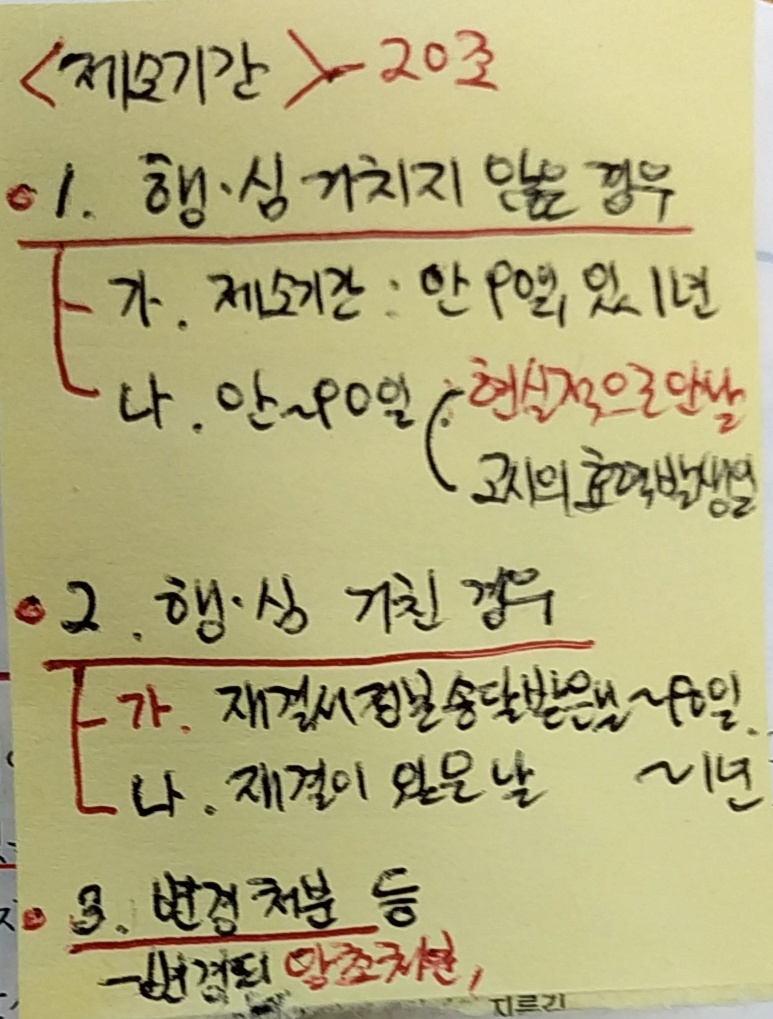 <제소기간> - 20조
1. 행·심 거치지 않은 경우
가. 제소기간 : 안 90일, 있 1년
나. 안~90일 현실적으로 안 날
고지의 효력발생일
2. 행·심 거친 경우
가. 재결서 정본 송달받은날 ~90일.
나. 재결이 있은 날 ~1년
3. 변경처분 등
-변경된 당초처분,